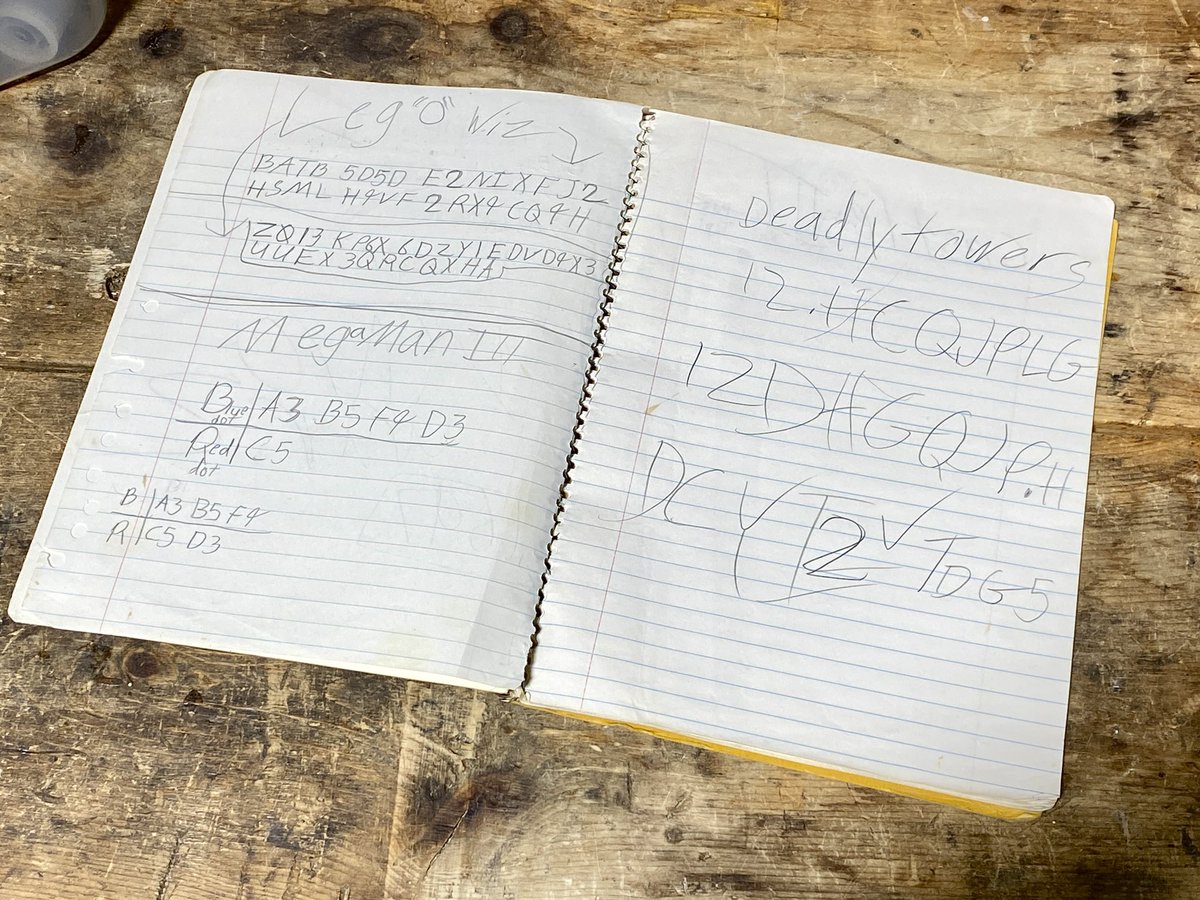 Leg "O" Wiz
BATB 5D5D E2NIXFJ2
HSML H4VF 2RX4 CQ4H
ZQ13 KPGX 6DZY1EDVD4X3
UUEX3QRCQXHA
MegaMan III
Blue dot A3 B5 F4 D3
Red dot C5
B A3 B5 F4
R C5 D3
Deadly towers
12.HCQJPLG
12DHGQJP.H
DCY T2VTDG5